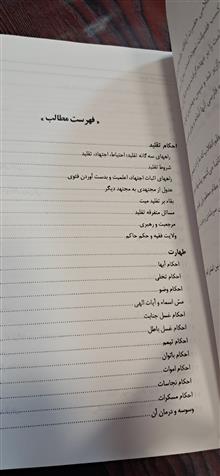 * فهرست مطالب *
احکام تقلید
راههای سه گانه تقلید: احتیاط، اجتهاد، تقلید
شروط تقلید
راههای اثبات اجتهاد، اعلمیت و بدست آوردن فتوی
عدول از مجتهدی به مجتهد دیگر
بقاء بر تقلید میت
مسائل متفرقه تقلید
مرجعیت و رهبری
ولایت فقیه و حکم حاکم
طهارت
احکام آبها
احکام تخلی
احکام وضو
مس اسماء و آیات الهی
احکام غسل جنابت
احکام غسل باطل
احکام تیمم
احکام بانوان
احکام اموات
احکام نجاسات
احکام مسکرات
وسوسه و درمان آن